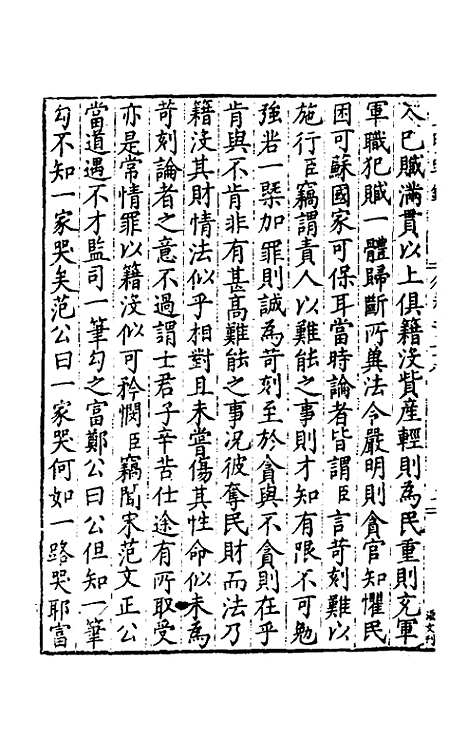 入己贓滿貫以上俱籍沒貲產輕則為民重則充軍
軍職犯贓一體歸斷所兾法令嚴明則貪官知懼民
困可蘇國家可保耳當時論者皆謂臣言苛刻難以
施行臣竊謂責人以難能之事則才知有限不可勉
強若一槩加罪則誠為苛刻至於貪與不貪則在乎
肯與不肯非有甚髙難能之事况彼奪民財而法乃
籍沒其財情法似乎相對且未嘗傷其性命似未為
苛刻論者之意不過謂士君子辛苦仕途有所取受
亦是常情罪以籍沒似可矜憫臣竊聞宋范文正公
當道遇不才監司一筆勾之富鄭公曰公但知一筆
勾不知一家哭矣范公曰一家哭何如一路哭耶富